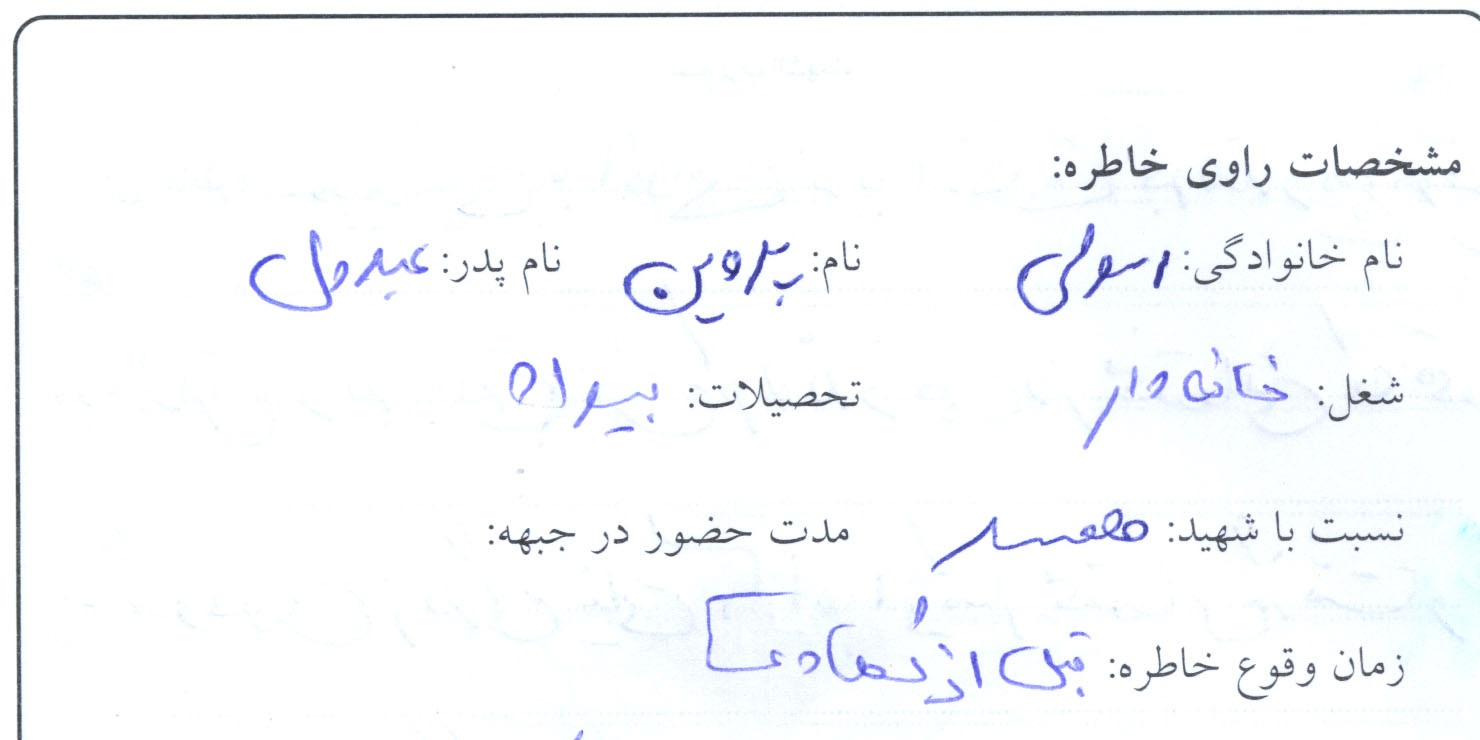 مشخصات راوی خاطره:
نام خانوادگی: رسولی نام: پروین نام پدر:
شغل: خانه دار تحصیلات:
نسبت با شهید: همسر مدت حضور در جبهه:
زمان وقوع خاطره: قبل از شهادت